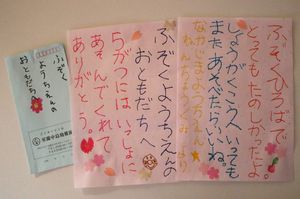 ふぞく
ようちえんの
おともだちへ
ふぞくようちえんの
おともだちへ
5がつには いっしょに
あそんでくれて
ありがとう。
ふぞくひろばで
とってもたのしかったよ。
しょうがくこうへいっても
またあそべたらいいね。
なかじまようちえん